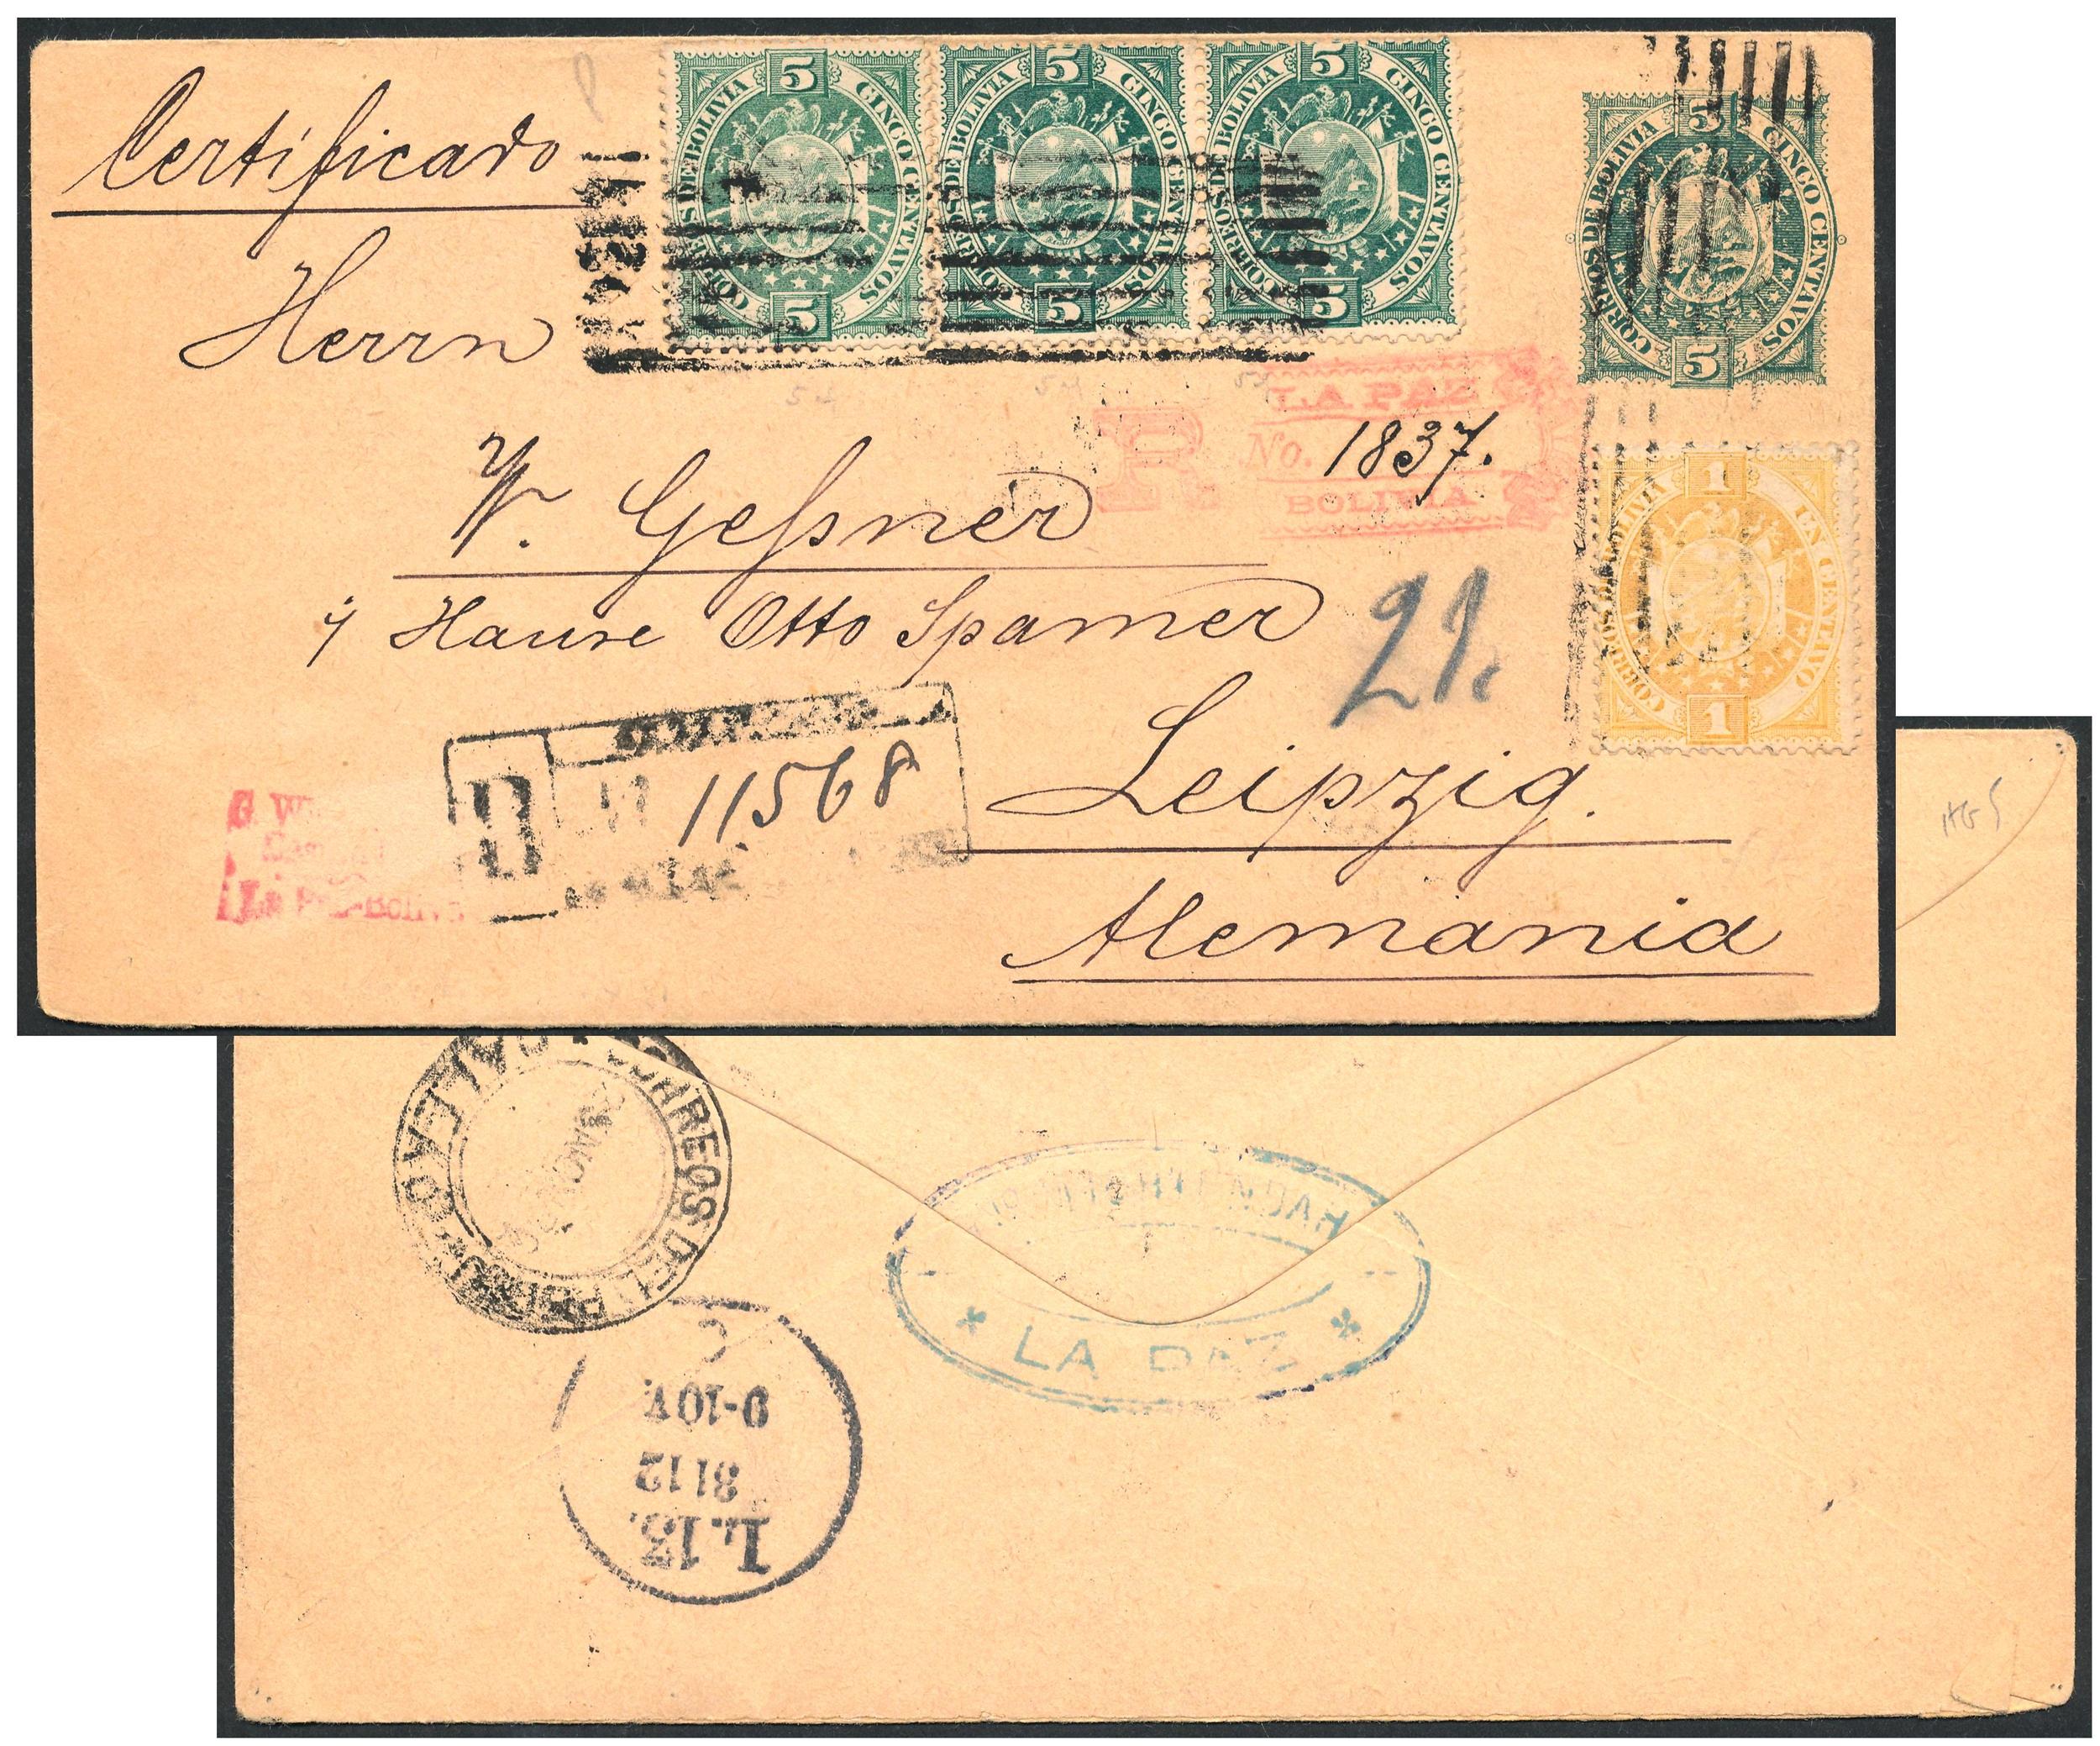 Certificado
Herrn
W. Geßner
Hause Otto Spamer
Leipzig.
Alemania
21.
5
CORREOS DE BOLIVIA
CINCO CENTAVOS
5
5
CORREOS DE BOLIVIA
CINCO CENTAVOS
5
5
CORREOS DE BOLIVIA
CINCO CENTAVOS
5
5
CORREOS DE BOLIVIA
CINCO CENTAVOS
5
1
CORREOS DE BOLIVIA
UN CENTAVO
1
R
LA PAZ
No. 1837.
BOLIVIA
R
11568
G. W
La Paz-Boliv
CORREOS DEL PERU
CALLAO
LA PAZ
L.13.
31 12
9-10V.